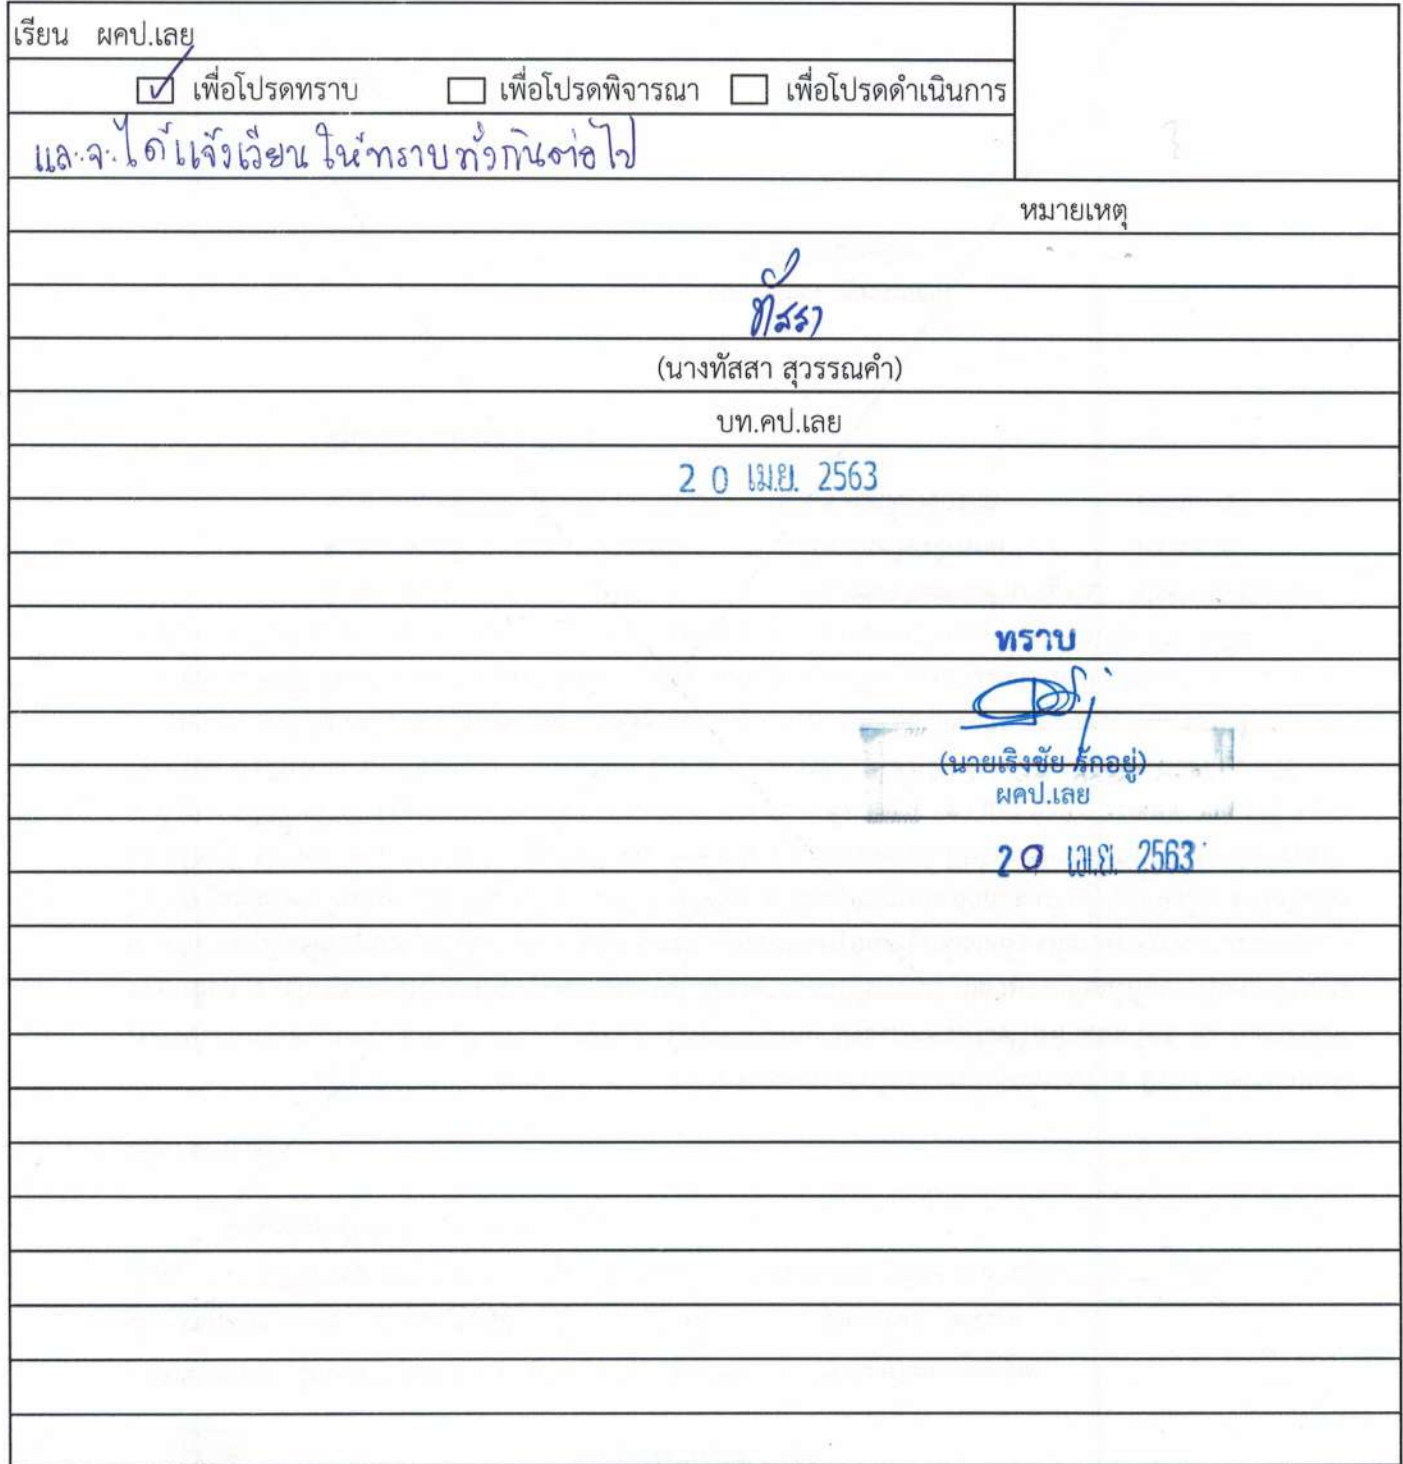 เรียน ผคป.เลย
เพื่อโปรดทราบ เพื่อโปรดพิจารณา เพื่อโปรดดำเนินการ
และจะได้แจ้งเวียนให้ทราบทั่วกันต่อไป
หมายเหตุ
ทัสสา
(นางทัสสา สุวรรณคำ)
บท.คป.เลย
20 เม.ย. 2563
ทราบ
(นายเริงชัย รักอยู่)
ผคป.เลย
20 เม.ย. 2563